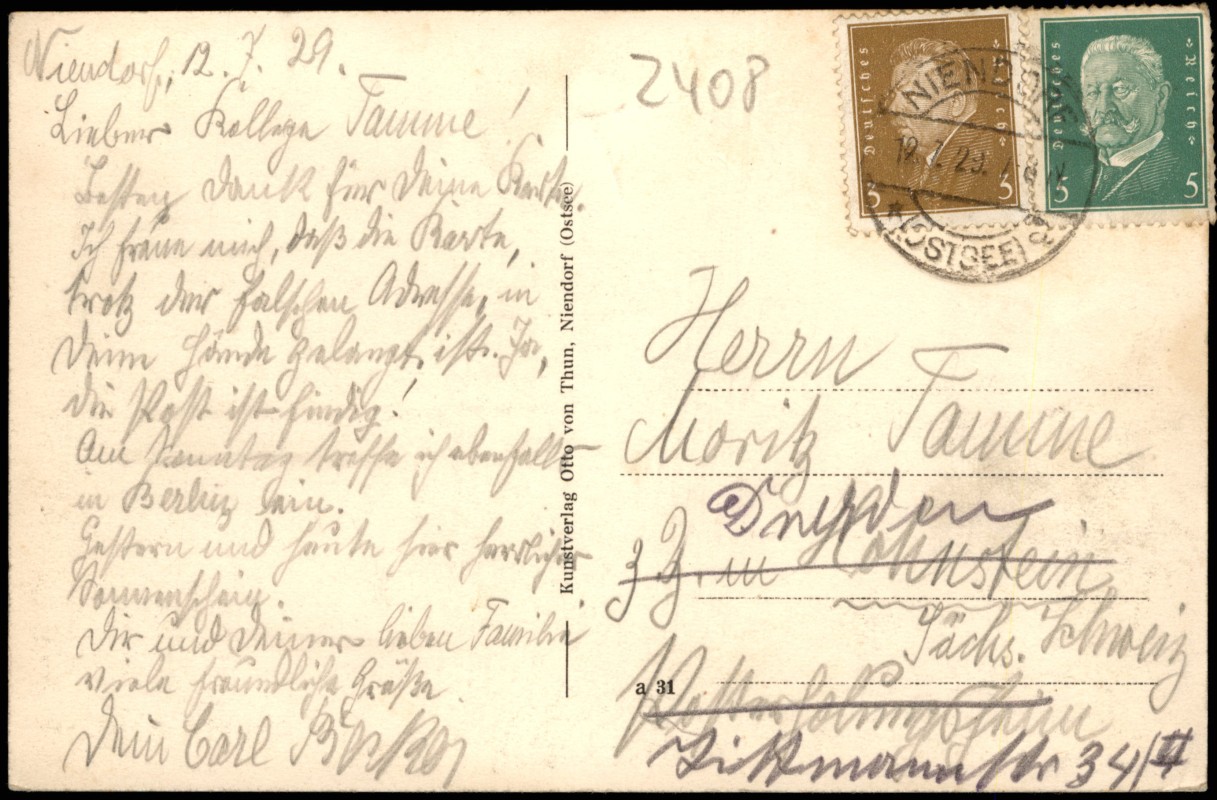 Niendorf, 12. 7. 29.
Lieber Kollege Tamme!
Besten Dank für Deine Karte.
Ich freue mich, daß die Karte,
trotz der falschen Adresse, in
Deine Hände gelangt ist. Ja,
die Post ist findig!
Am Sonntag treffe ich ebenfalls
in Berlin ein.
Gestern und heute hier herrlicher
Sonnenschein.
Dir und Deiner lieben Familie
viele freundliche Grüße
Dein Carl
Kunstverlag Otto von Thun, Niendorf (Ostsee)
2408
Deutsches Reich
3 3
Deutsches Reich
5 5
NIENDORF
12.7.29.
(OSTSEE)
Herrn
Moritz Tamme
Dresden
z. Z. in Hohnstein
Sächs. Schweiz
a 31
Wittmannstr 34/II